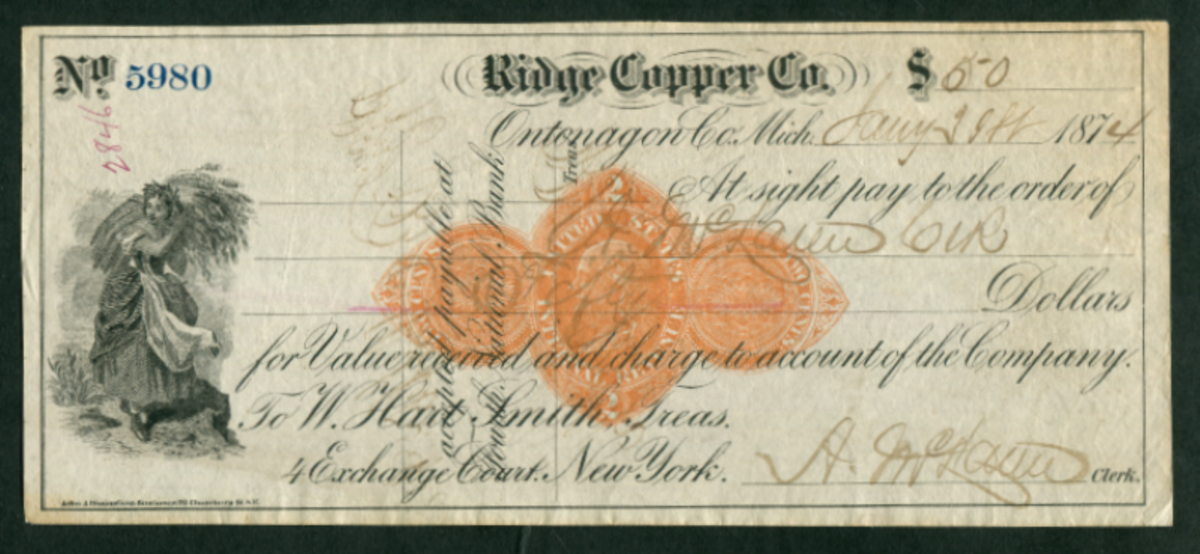 No. 5980 Ridge Copper Co. $ 50
2846
Ontonagon Co. Mich. Jany 28th 1874
At sight pay to the order of
A. McLaren Clk
Fifty Dollars
for Value received and charge to account of the Company.
To W. Hart Smith, Treas.
4 Exchange Court. New York. A. McLaren Clerk.
accepted payable at
National Bank
Treas.
UNITED STATES
2
2